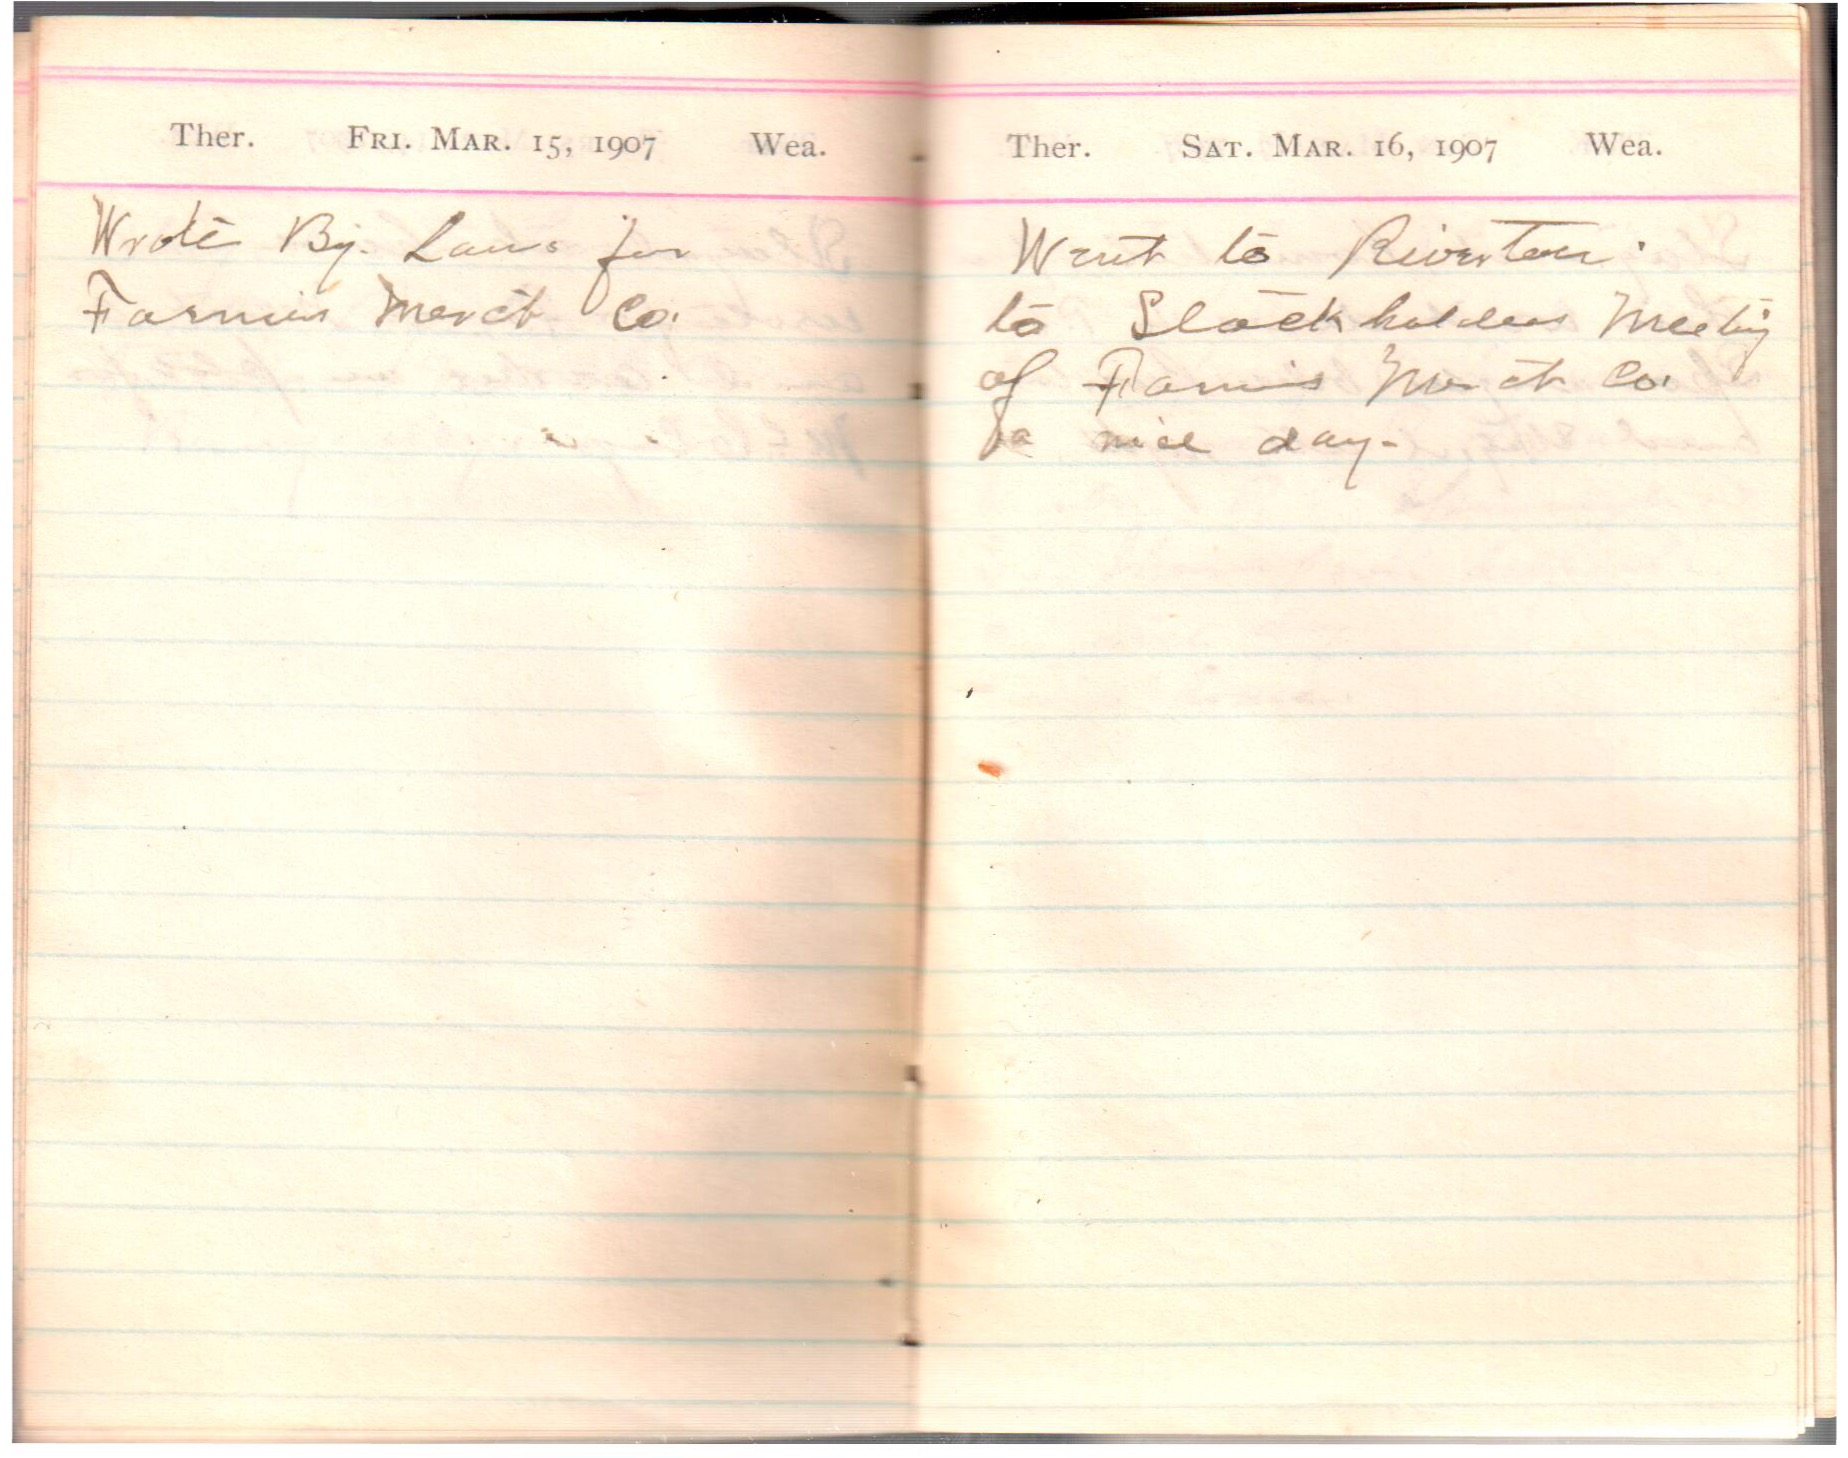 Ther. Fri. Mar. 15, 1907 Wea.
Wrote By. Laws for
Farmers Merct Co.
Ther. Sat. Mar. 16, 1907 Wea.
Went to Riverton.
to Stockholders Meeting
of Farmers Merct Co.
a nice day-